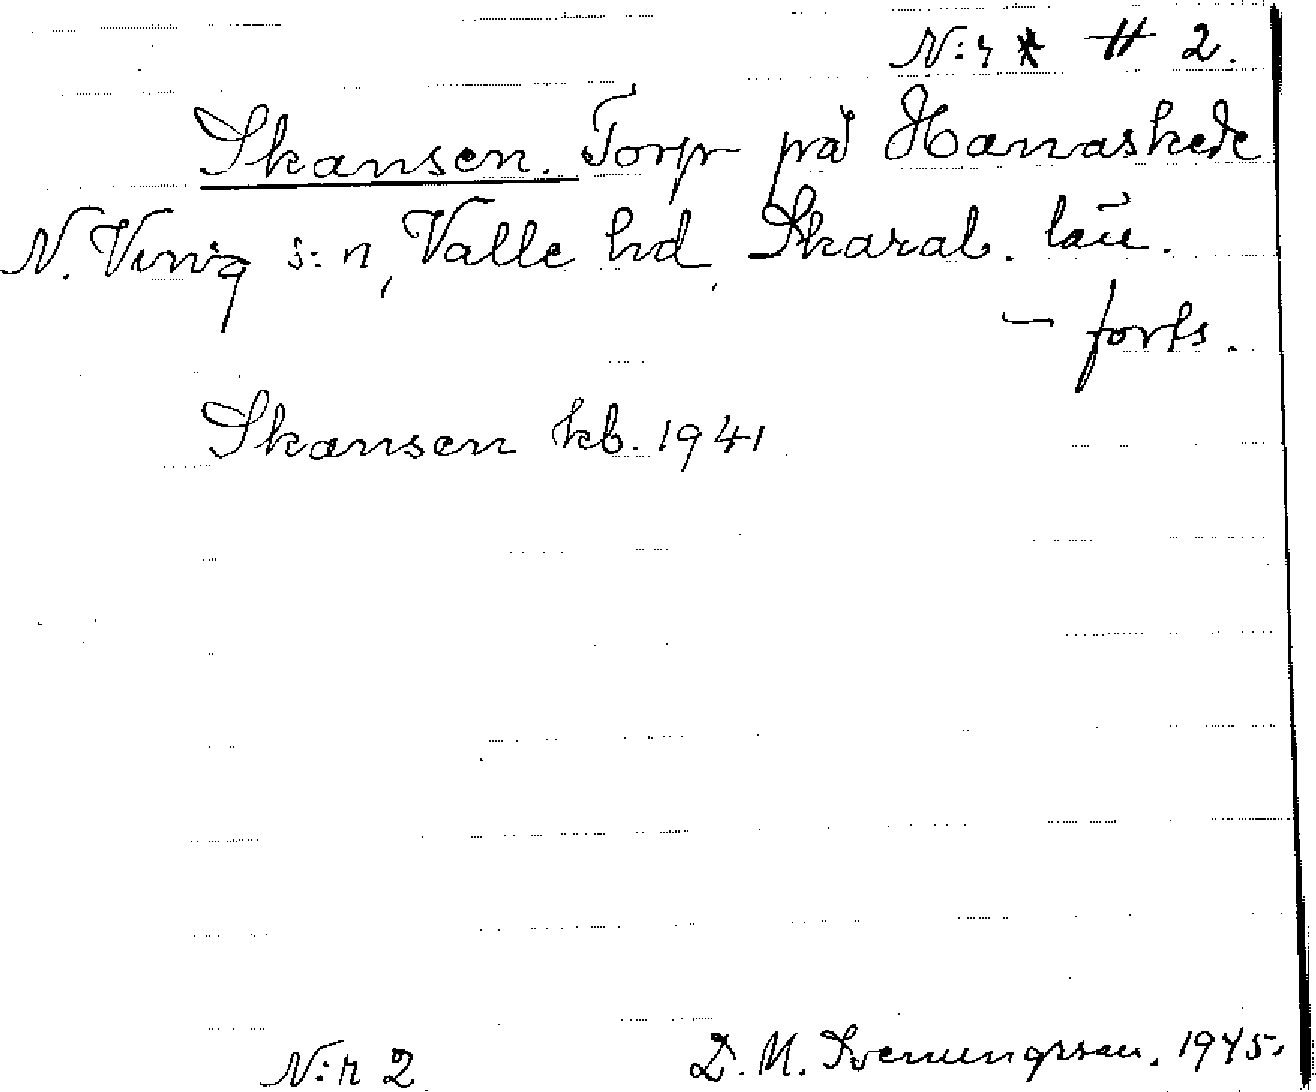 N:r 2.
Skansen. Torp på Hanaskede
N. Ving s:n, Valle hd, Skarab. län.
– forts.
Skansen kb. 1941
N:r 2
D. M. Svenungsson. 1945.